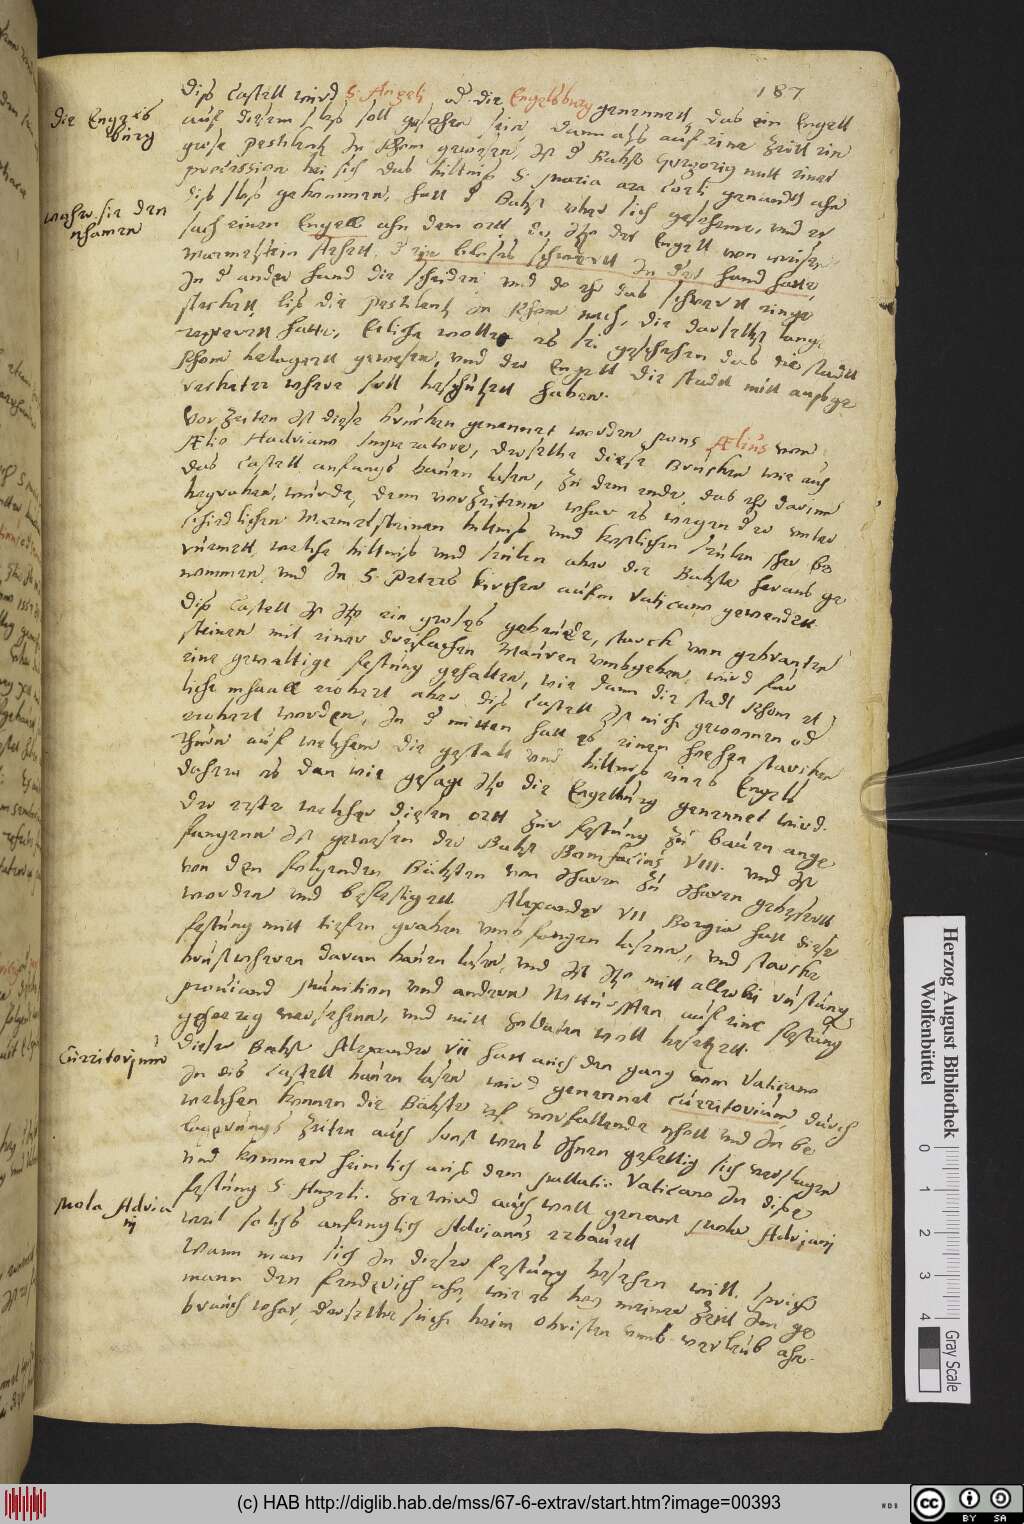 187
Die Engels
burg
Diss Castell wird S. Angeli od die Engelsburg genennett, das ein Engell
auf diesem schloss soll gesehen sein dann als auf eine Zeitt ein
grose pestilentz In Rhom gewesen, Ist d Babst Gregorig mitt einer
procession bei sich das biltnis S. Maria ara Coeli genandt ahn
woher sie den
nhamen
diss schloss gekommen, hatt d Babst uber sich gesehenn, und er
sach einen Engell ahn dem ortt, da Itzo der Engell von weisen
marmelstein stehett, d ein bloses schwertt In der hand hatte,
In d ander hand die scheiden und do er das schwertt einge
steckett, lies die pestilentz in Rhom nach, die daselbst lange
regierett hatte, Etliche wollen es sei geschehen das die stadt
Rhom belagertt gewesen, und der Engell die stadt mitt aussge
reckten schwertt soll beschützett haben.
Vor Zeiten Ist diese brücken genennet worden pons Ælius vom
Ælio Hadriano Imperatore, derselbe diese Brücken wie auch
das Castell anfangs bauen lasen, Zu dem ende, das er darinn
begraben würde, dann vor Zeitenn whar es wegen der unter
schiedlichen Marmelsteinen biltnis und kostlichen seulen sher be
rümett, welche biltnis und seulen aber die Babste heraus ge
nommen, und In S. Peters kirchen aufm Vaticano gewendett.
Diss Castell Ist Itzo ein groses gebeude, starck von gebranten
steinen mit einer dreifachen Mauren umbgeben, wird fur
eine gewaltige festung gehalten, wie dann die stadt Rhom et
liche mhaall erobert aber diss Castell Ist nich gewonnen od
erobert worden, In d mitten hatt es einen hoehen starcken
thurn auf welchem die gestalt und biltnis eines Engels
dahero es dan wie gesagt Itzo die Engelburg genennet wird.
Der erste welcher diesen ortt Zur festung Zu bauen ange
fangenn Ist gewesen der Babst Bonifacius VIII. und Ist
von den folgenden Bäbsten von Iharen Zu Iharen gebesertt
worden und befestigett Alexander VII Borgia hatt diese
festung mitt tiefen graben umbfangen lasenn, und starcke
brustwheren daran bauen lasen, und Ist Itzo mitt allerlei rüstung
proviand Munition und andern auf eine festung
gehoerig versehenn, und mitt soldaten woll besetzett.
Curritorium
Dieser Babst Alexander VII hatt auch den gang vom Vaticano
In dis Castell bauen lasen wird genennet Curritorium durch
welchen konnen die Bäbste uf vorfallende nhott und In be
lagerungs Zeiten auch sonst wans Ihnen gefellig sich verfugen
und kommen heimlich auss dem pallatio Vaticano In diese
Mola Adria
nj
festung S. Angeli. Sie wird auch woll genant Mola Adrianj
weil solchs anfenglich Adrianus erbauett
Wann man sich In dieser festung besehen will, sprich
mann den fenderich ahn, wie es bei meiner Zeitt Im ge
brauch whar, derselbe sucht beim Obristen umb verlaub ahn.
Herzog August Bibliothek
Wolfenbüttel
0
1
2
3
4
Gray Scale
(c) HAB http://diglib.hab.de/mss/67-6-extrav/start.htm?image=00393
WDB
cc
BY SA